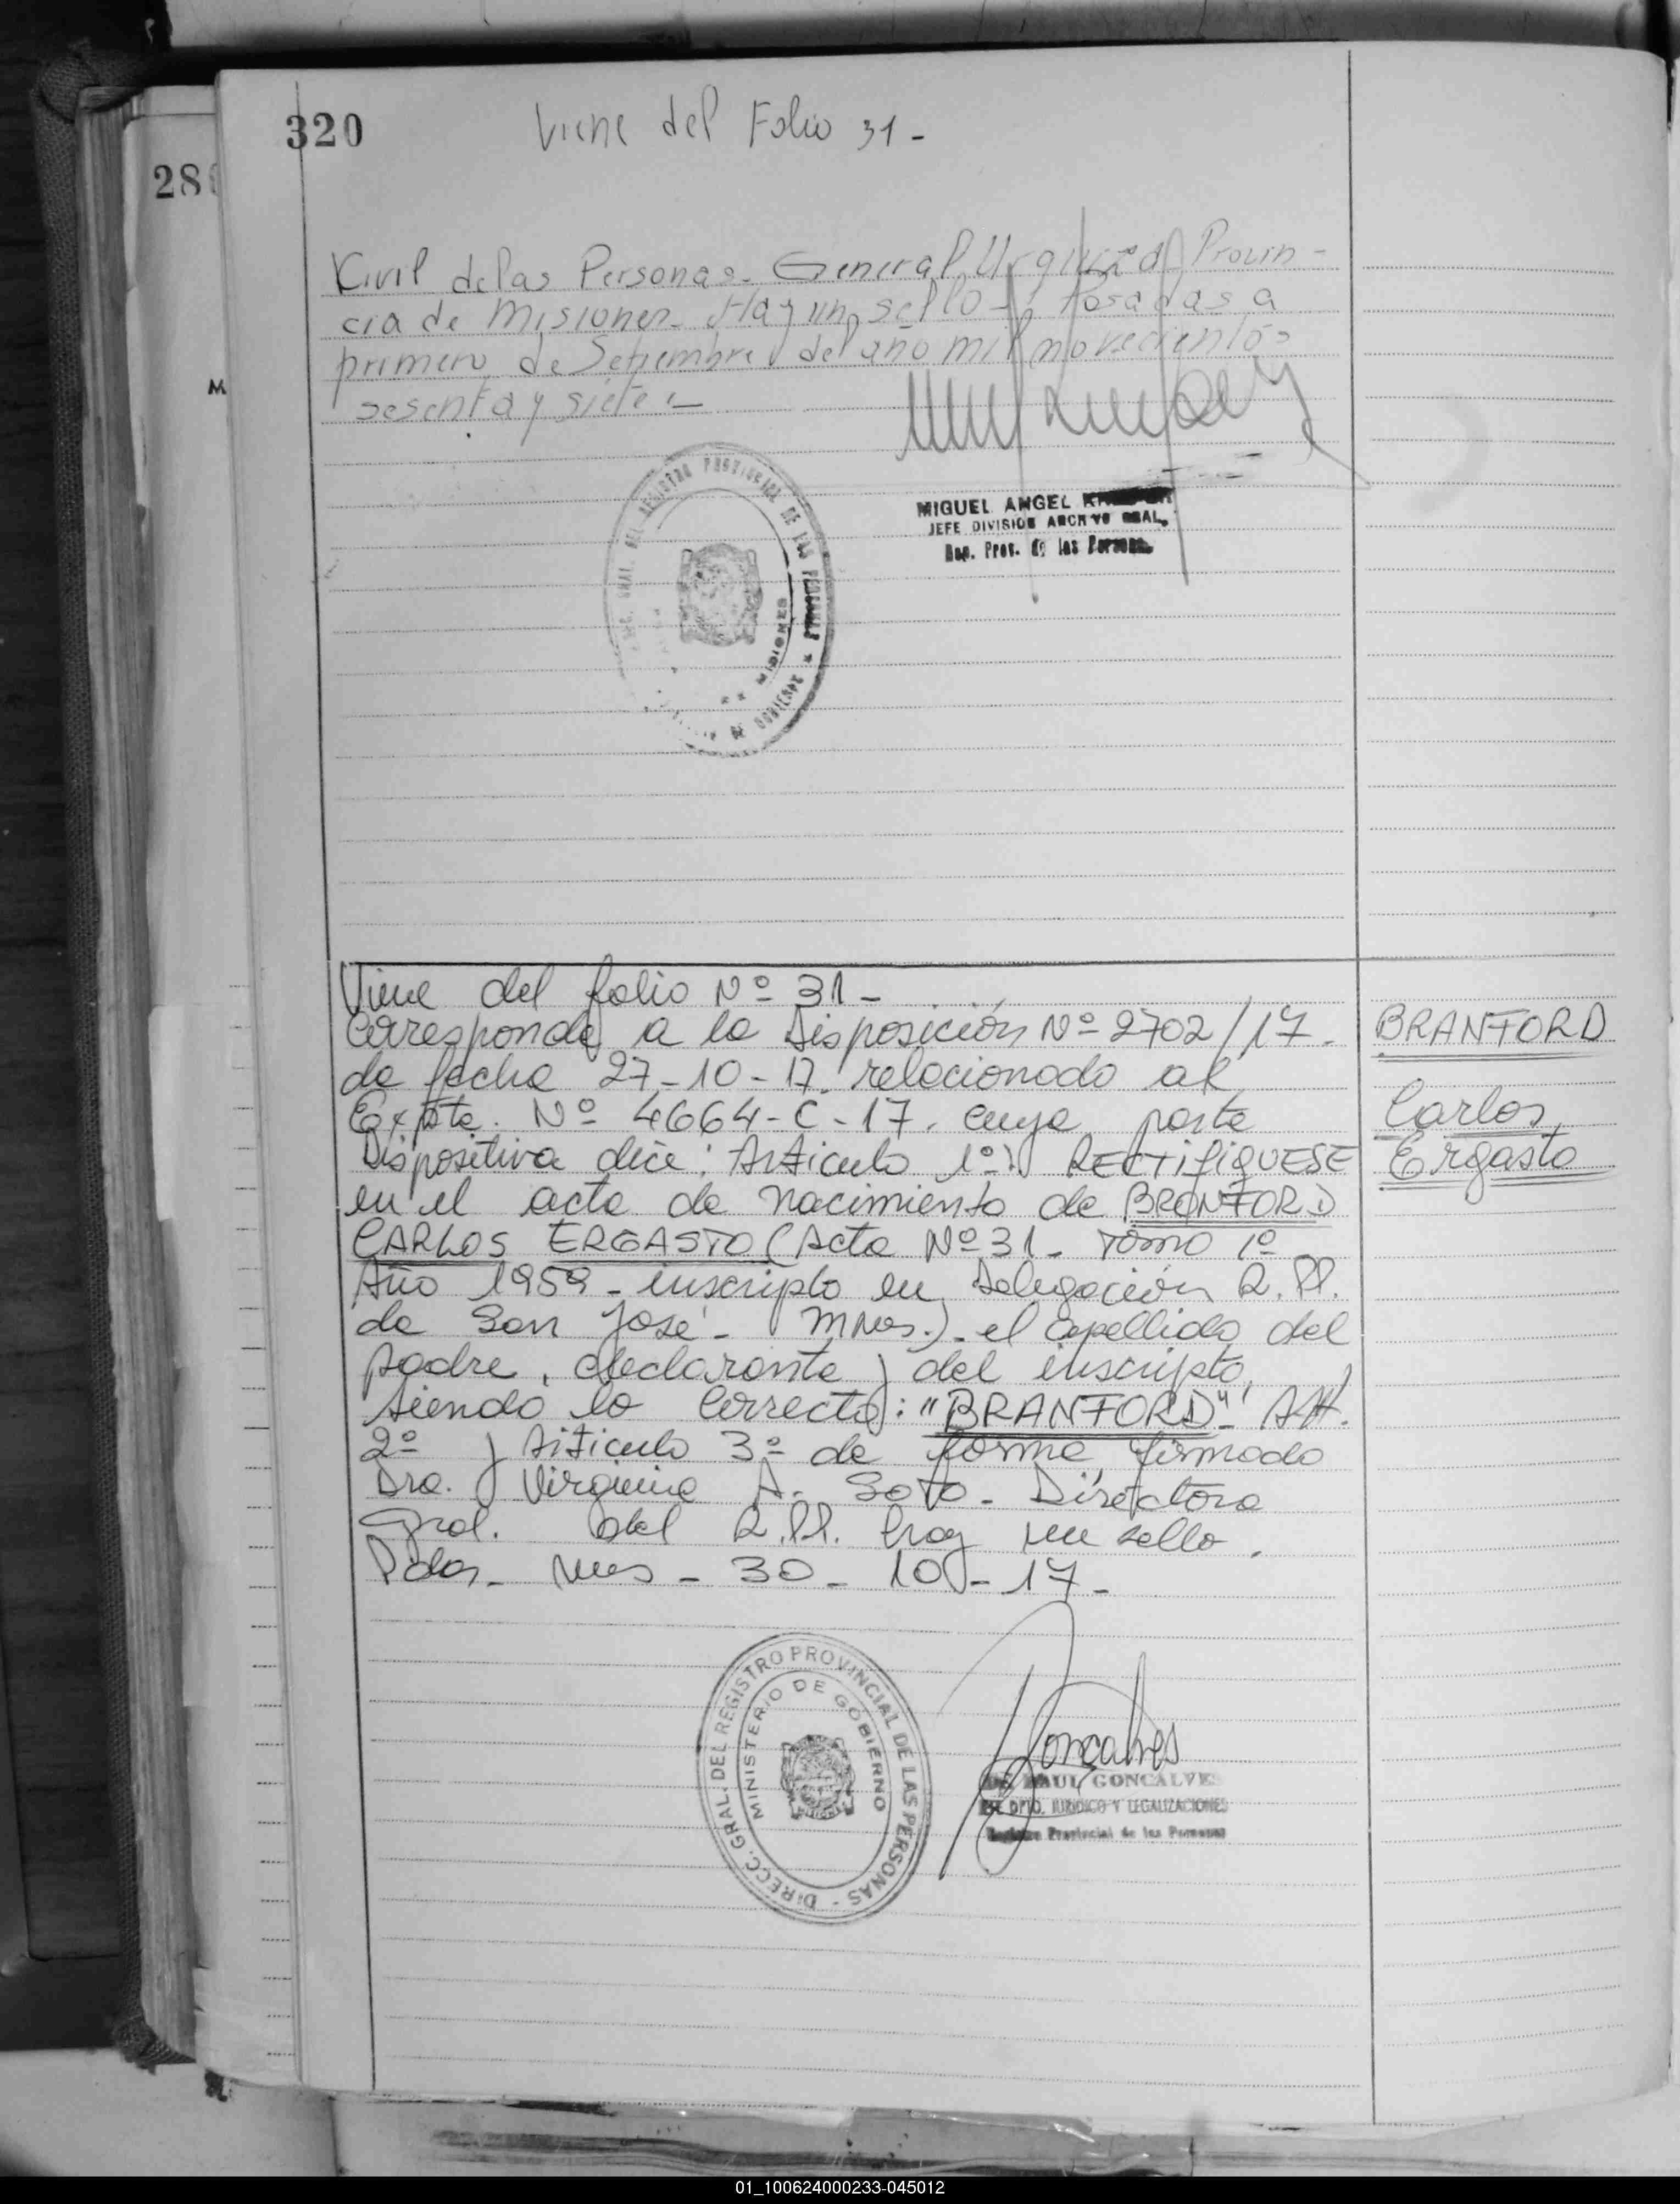 320
Viene del Folio 31-
280
Civil de las Personas- General Urquiza Provin-
cia de Misiones- Hay un sello- Posadas a
primero de Setiembre del año mil novecientos
sesenta y siete.-
M
MIGUEL ANGEL
JEFE DIVISION ARCHIVO GRAL.
Rep. Prov. de las Personas
DIREC. GRAL. DEL REGISTRO PROVINCIAL DE LAS PERSONAS * DE GOBIERNO
MISIONES
Viene del folio Nº 31-
Corresponde a la Disposición Nº 2702/17.
de fecha 27-10-17. relacionado al
Expte. Nº 4664-C-17. cuya parte
Dispositiva dice: Artículo 1º: RECTIFIQUESE
en el acta de nacimiento de BRANFORD
CARLOS ERGASTO (Acta Nº 31- Tomo 1º
Año 1959- inscripto en Delegación R.PP.
de San José- Mnes.)- el apellido del
padre, declarante y del inscripto,
siendo lo correcto: "BRANFORD"- Art.
2º y Artículo 3º de forma, firmado
Dra. Virginia A. Soto- Directora
Gral. del R.PP. hay un sello.
Pdas- Mnes- 30-10-17-
BRANFORD
Carlos
Ergasto
DIRECC. GRAL. DEL REGISTRO PROVINCIAL DE LAS PERSONAS -
MINISTERIO DE GOBIERNO
Goncalves
RAUL GONCALVES
DPTO. JURIDICO Y LEGALIZACIONES
Registro Provincial de las Personas
01_100624000233-045012